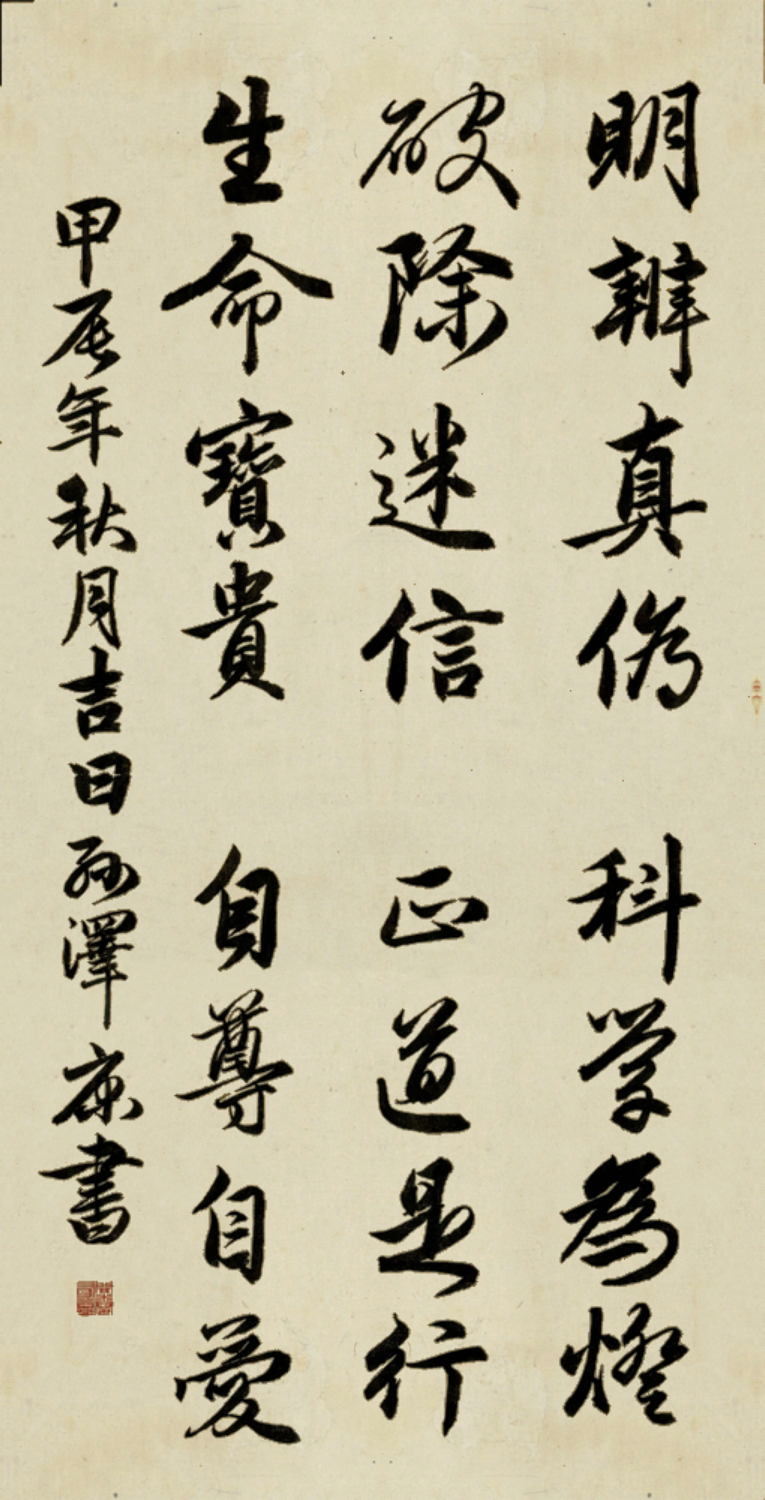 明辨真偽 科学為燈
破除迷信 正道是行
生命寶貴 自尊自愛
甲辰年秋月吉日孫澤康書